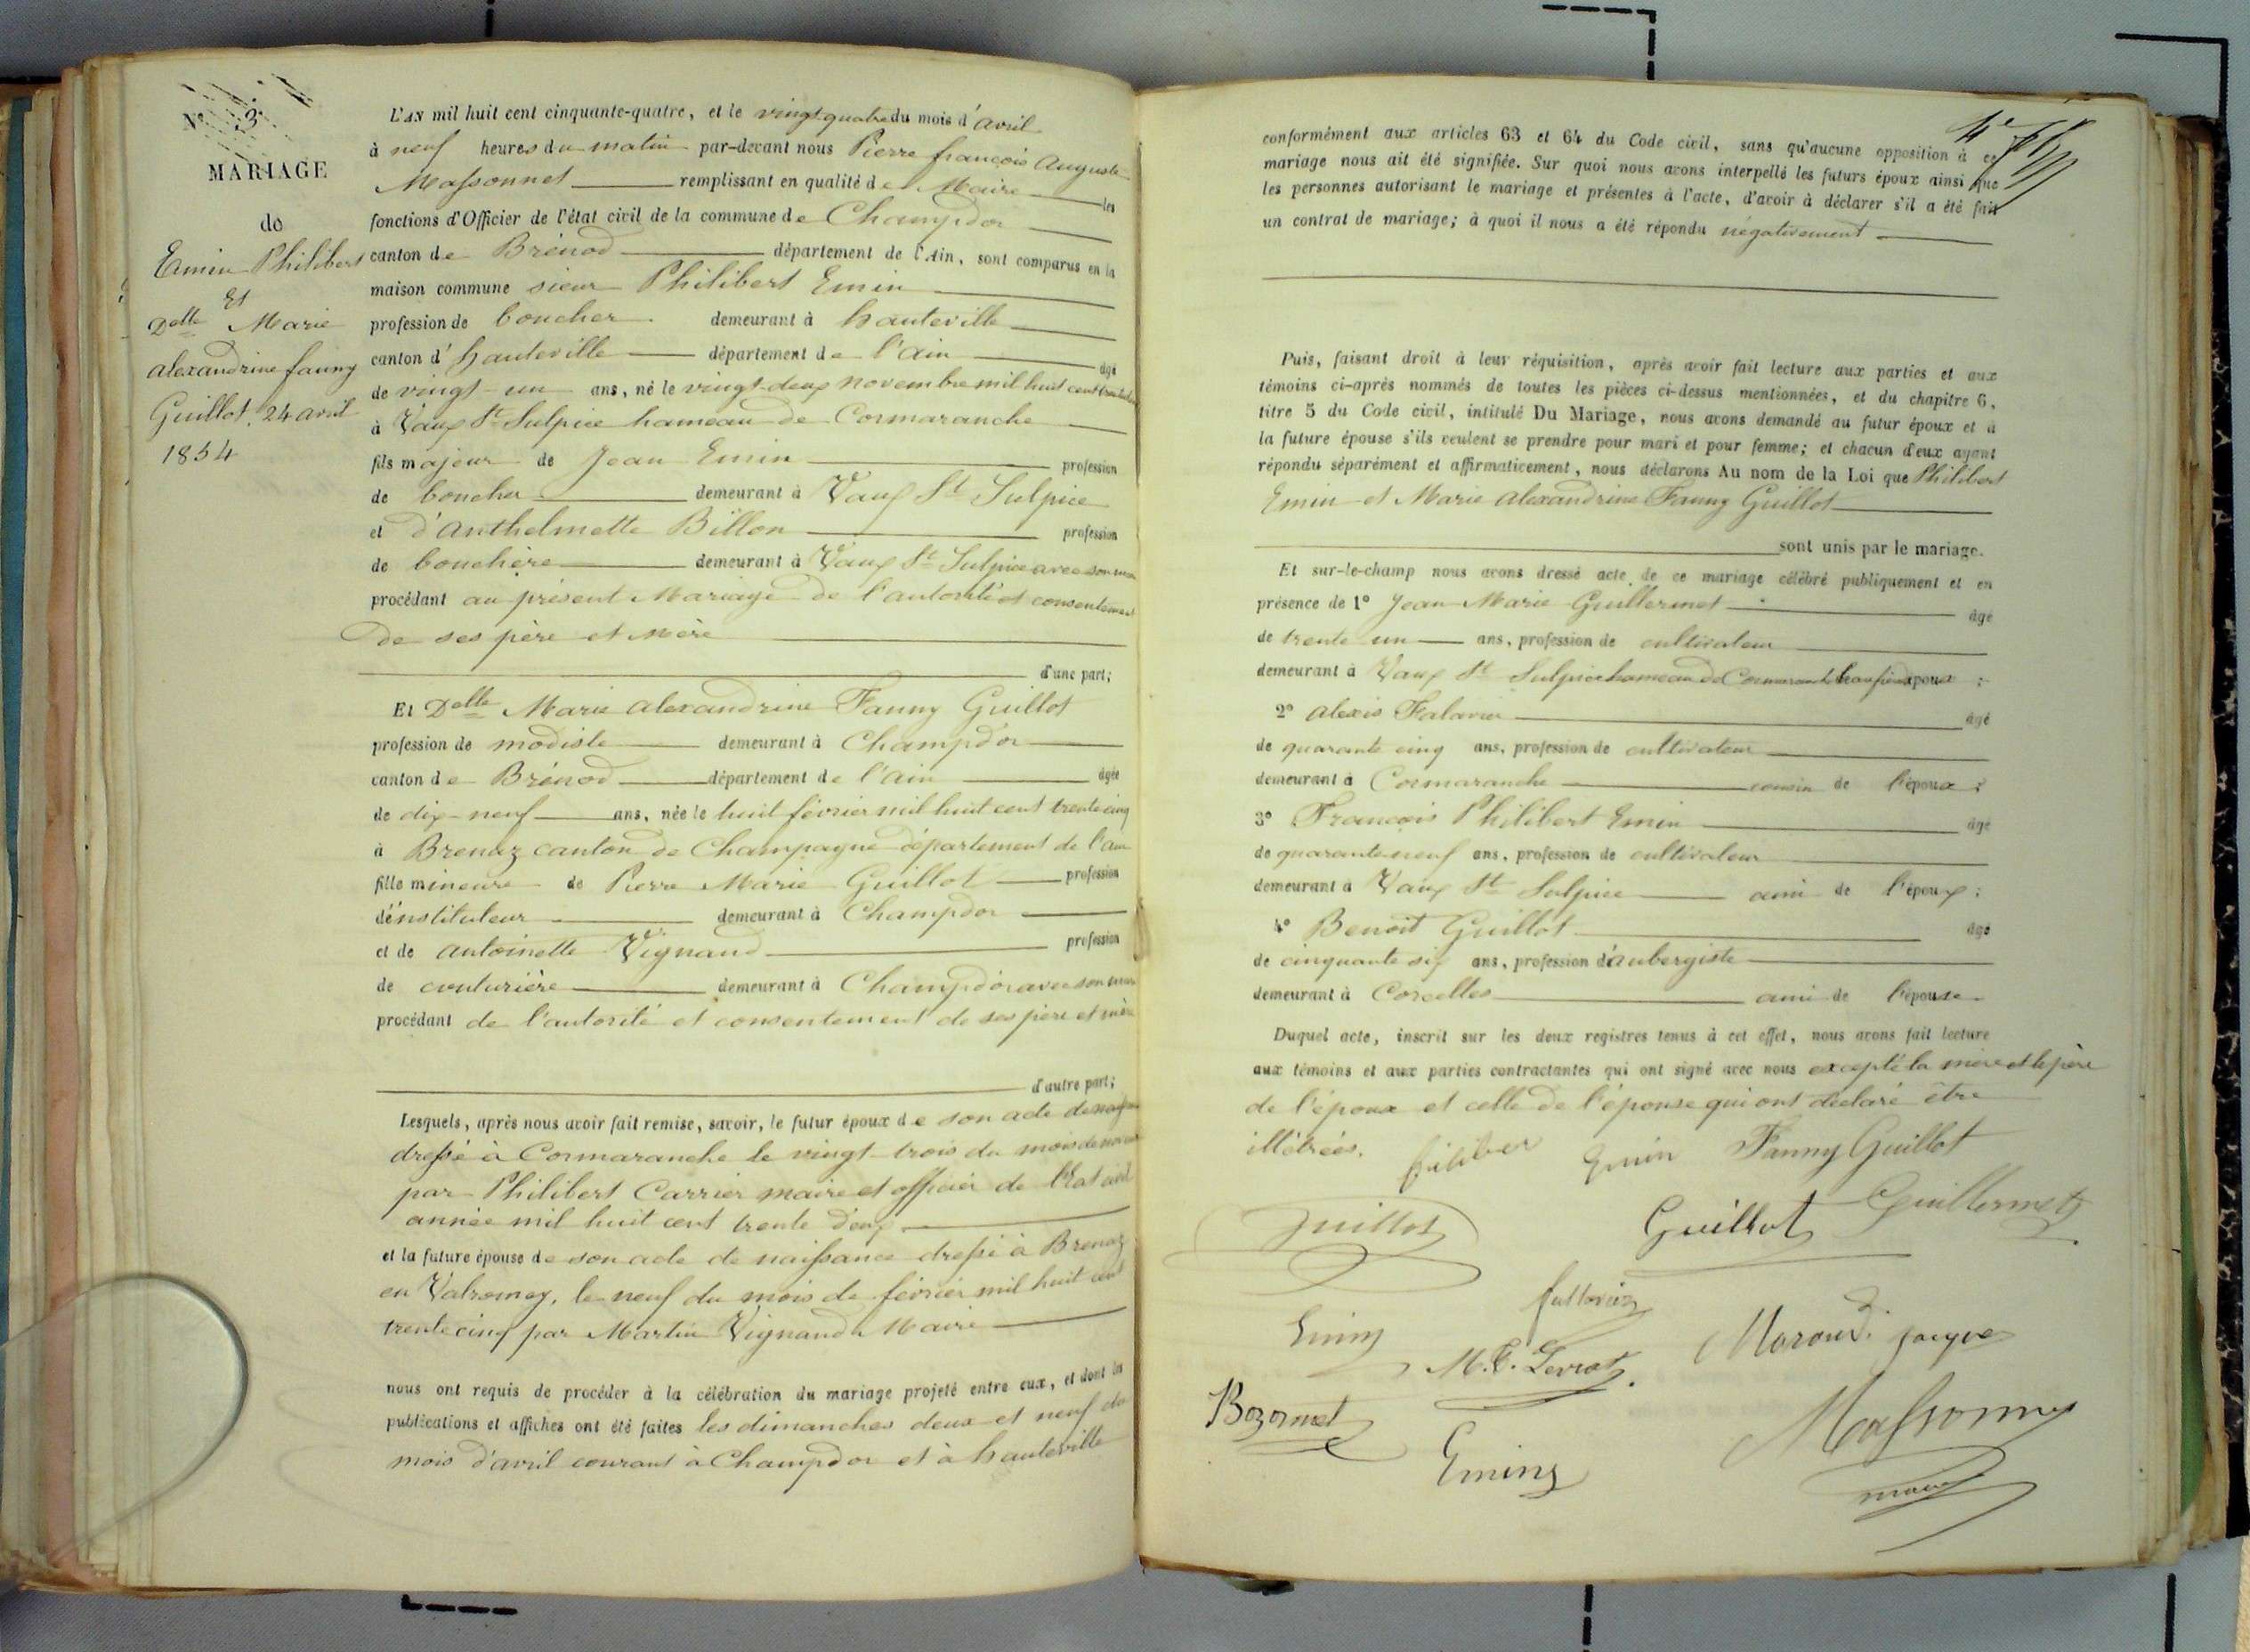 N° 3.
MARIAGE
de
Emin Philibert
Et
Delle Marie
alexandrine fanny
Guillot. 24 avril
1854
L'AN mil huit cent cinquante-quatre, et le vingt quatre du mois d'avril
à neuf heures du matin par-devant nous Pierre françois Auguste
Massonnet remplissant en qualité de Maire les
fonctions d'Officier de l'état civil de la commune de Champdor
canton de Brénod département de l'Ain, sont comparus en la
maison commune sieur Philibert Emin
profession de boucher demeurant à hauteville
canton d'hauteville département de l'ain âgé
de vingt-un ans, né le vingt-deux novembre mil huit cent trente deux
à Vaux St Sulpice hameau de Cormaranche
fils majeur de Jean Emin profession
de boucher demeurant à Vaux St Sulpice
et d'anthelmette Billon profession
de bouchère demeurant à Vaux St Sulpice avec son mari
procédant au présent Mariage de l'autorité et consentement
de ses père et Mère
d'une part;
Et Delle Marie alexandrine Fanny Guillot
profession de modiste demeurant à Champdor
canton de Brénod département de l'ain âgée
de dix-neuf ans, née le huit février mil huit cent trente cinq
à Brenaz canton de Champagne département de l'ain
fille mineure de Pierre Marie Guillot profession
d'instituteur demeurant à Champdor
et de antoinette Vignand profession
de couturière demeurant à Champdor avec son mari
procédant de l'autorité et consentement de ses père et mère
d'autre part;
Lesquels, après nous avoir fait remise, savoir, le futur époux de son acte de naissance
dressé à Cormaranche le vingt-trois du mois de novembre
par Philibert Carrier maire et officier de l'Etat civil
année mil huit cent trente deux
et la future épouse de son acte de naissance dressé à Brenaz
en Valromey, le neuf du mois de février mil huit cent
trente cinq par Martin Vignand Maire
nous ont requis de procéder à la célébration du mariage projeté entre eux, et dont les
publications et affiches ont été faites les dimanches deux et neuf du
mois d'avril courant à Champdor et à hauteville
conformément aux articles 63 et 64 du Code civil, sans qu'aucune opposition à ce
mariage nous ait été signifiée. Sur quoi nous avons interpellé les futurs époux ainsi que
les personnes autorisant le mariage et présentes à l'acte, d'avoir à déclarer s'il a été fait
un contrat de mariage; à quoi il nous a été répondu négativement
Puis, faisant droit à leur réquisition, après avoir fait lecture aux parties et aux
témoins ci-après nommés de toutes les pièces ci-dessus mentionnées, et du chapitre 6,
titre 5 du Code civil, intitulé Du Mariage, nous avons demandé au futur époux et à
la future épouse s'ils veulent se prendre pour mari et pour femme; et chacun d'eux ayant
répondu séparément et affirmativement, nous déclarons Au nom de la Loi que Philibert
Emin et Marie alexandrine Fanny Guillot
sont unis par le mariage.
Et sur-le-champ nous avons dressé acte de ce mariage célébré publiquement et en
présence de 1° Jean Marie Guillermet âgé
de trente un ans, profession de cultivateur
demeurant à Vaux St Sulpice hameau de Cormaranche beau frère époux ;
2° alexis Falavier âgé
de quarante cinq ans, profession de cultivateur
demeurant à Cormaranche cousin de l'époux ;
3° François Philibert Emin âgé
de quarante neuf ans, profession de cultivateur
demeurant à Vaux St Sulpice ami de l'époux ;
4° Benoit Guillot âgé
de cinquante six ans, profession d'aubergiste
demeurant à Corcelles ami de l'épouse
Duquel acte, inscrit sur les deux registres tenus à cet effet, nous avons fait lecture
aux témoins et aux parties contractantes qui ont signé avec nous excepté la mère et le père
de l'époux et celle de l'épouse qui ont déclaré être
illétrées.
filiber Emin Fanny Guillot
Guillot Guillot Guillermet
Emin
M. C. Levrat
Bozonnet Emin Massonnet
maire